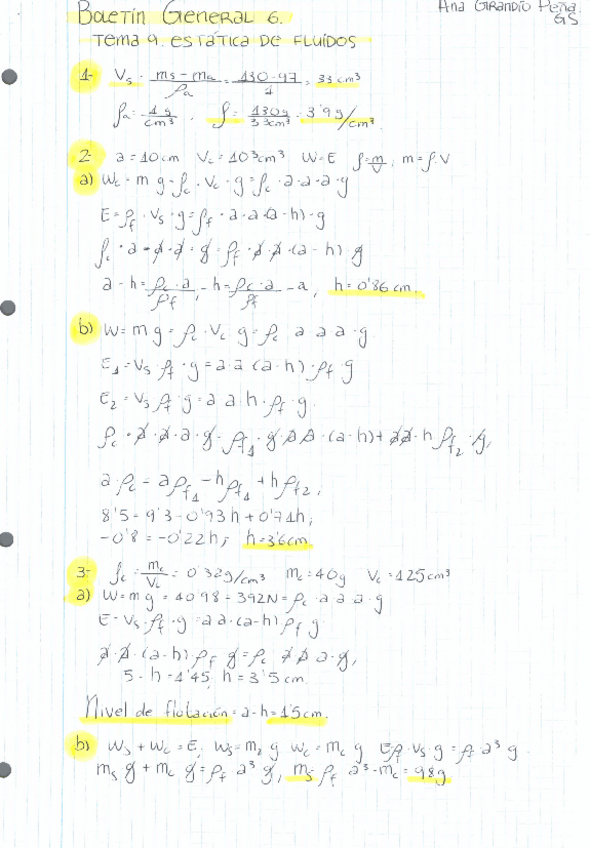 Boletín General 6.
Ana Girandio Peña
G5
Tema 9. estática de fluidos
1- Vs = ms - ma / ρa = 130 - 97 / 1 = 33 cm³
ρa = 1g / cm³ , ρ = 130g / 33cm³ = 3'9 g/cm³
2- a = 10 cm Vc = 10³ cm³ W = E ρ = m/V ; m = ρ · V
a) Wc = m g = ρc · Vc · g = ρc · a · a · a · g
E = ρf · Vs · g = ρf · a · a (a - h) · g
ρc · a · a · a · g = ρf · a · a · (a - h) · g
a - h = ρc · a / ρf , - h = ρc · a / ρf - a , h = 0'86 cm.
b) W = m g = ρc · Vc g = ρc a a a · g
E1 = Vs · ρf · g = a · a (a - h) · ρf g
E2 = Vs ρf g = a a h · ρf · g .
ρc · a · a · a · g = ρf1 · g · a a · (a - h) + a a · h ρf2 · g,
a · ρc = a ρf1 - h ρf1 + h ρf2 ,
8'5 = 9'3 - 0'93 h + 0'71 h ;
-0'8 = -0'22 h ; h = 3'6 cm
3- ρc = mc / Vc = 0'32 g/cm³ mc = 40 g Vc = 125 cm³
a) W = m g = 40 · 98 = 392 N = ρc · a a a · g
E = Vs · ρf · g = a a · (a - h) ρf g
a · a · (a - h) · ρf g = ρc a a a · g,
5 - h = 1'45 , h = 3'5 cm
Nivel de flotación = a - h = 1'5 cm.
b) Ws + Wc = E , Ws = m2 g Wc = mc g E = ρf · Vs g = ρf · a³ g
ms g + mc g = ρf a³ g , ms = ρf a³ - mc = 98g